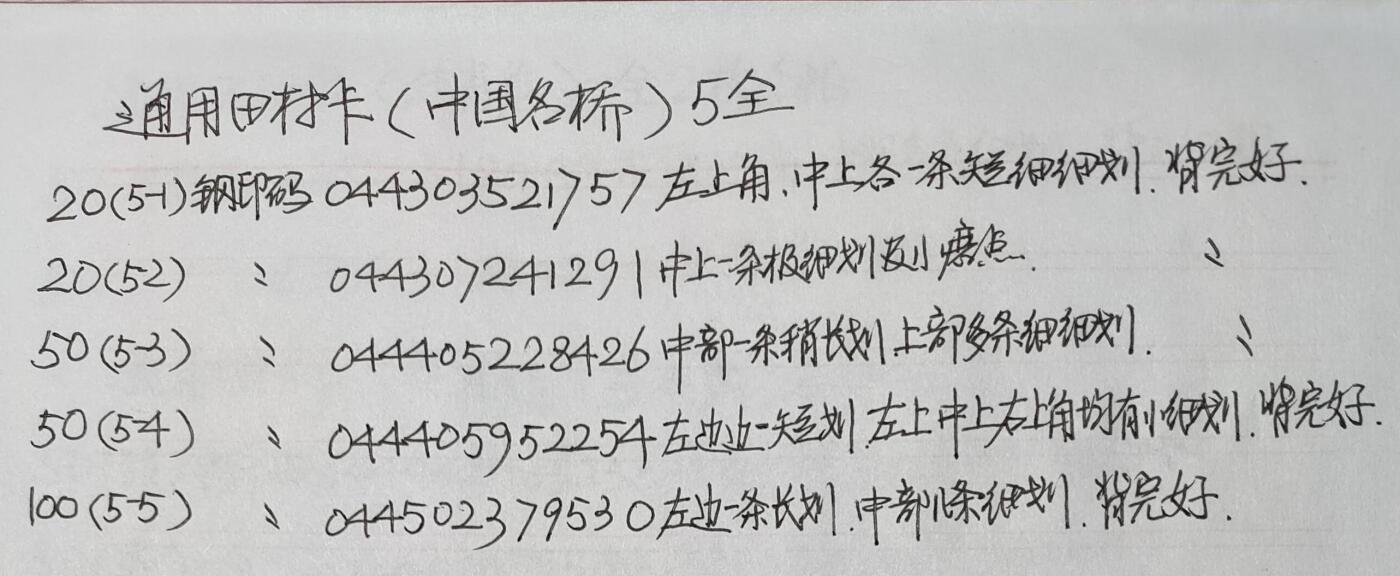 通用田村卡(中国名桥)5全
20(5-1)钢印码 044303521757 左上角、中上各一条短细细划.背完好.
20(5-2) 〃 044307241291 中上一条极细划及小磨点. 〃
50(5-3) 〃 044405228426 中部一条稍长划.上部多条细细划. 〃
50(5-4) 〃 044405952254 左边边一短划.左上中上右上角均有小细划.背完好.
100(5-5) 〃 044502379530 左边一条长划.中部条细划.背完好.